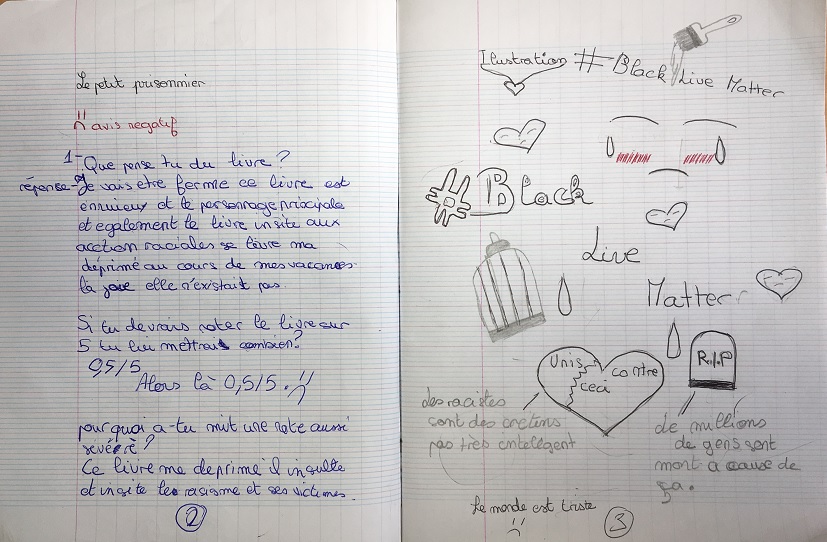 Le petit prisonnier
avis negatif
1- Que pense tu du livre ?
réponse-Je vais etre ferme ce livre est
ennuieux et le personnage principale
et egalement le livre insite aux
acction raciales se livre ma
déprimé au cours de mes vacances.
la joie elle n'existait pas.
Si tu devrais noter le livre sur
5 tu lui mettrais combien?
0,5/5
Alors là 0,5/5.
pourquoi a-tu mit une note aussi
sévère ?
Ce livre me deprime il insulte
et insite le racisme et ses victimes.
2
Ilustration # Black Live Matter
# Black
Live
Matter
Unis contre
ceci
R.I.P
des racistes
sont des cretins
pas très intelegent
de millions
de gens sont
mort a cause de
ça.
Le monde est triste
3